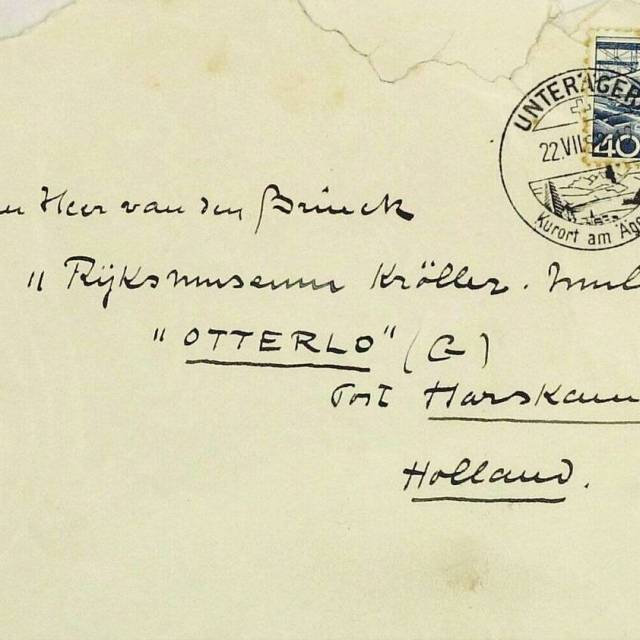 UNTERÄGER
22.VII
40
Kurort am Äg
Heer van den Brüeck
" Rijksmuseum Kröller.
"OTTERLO" (G)
Post Harskam
Holland.